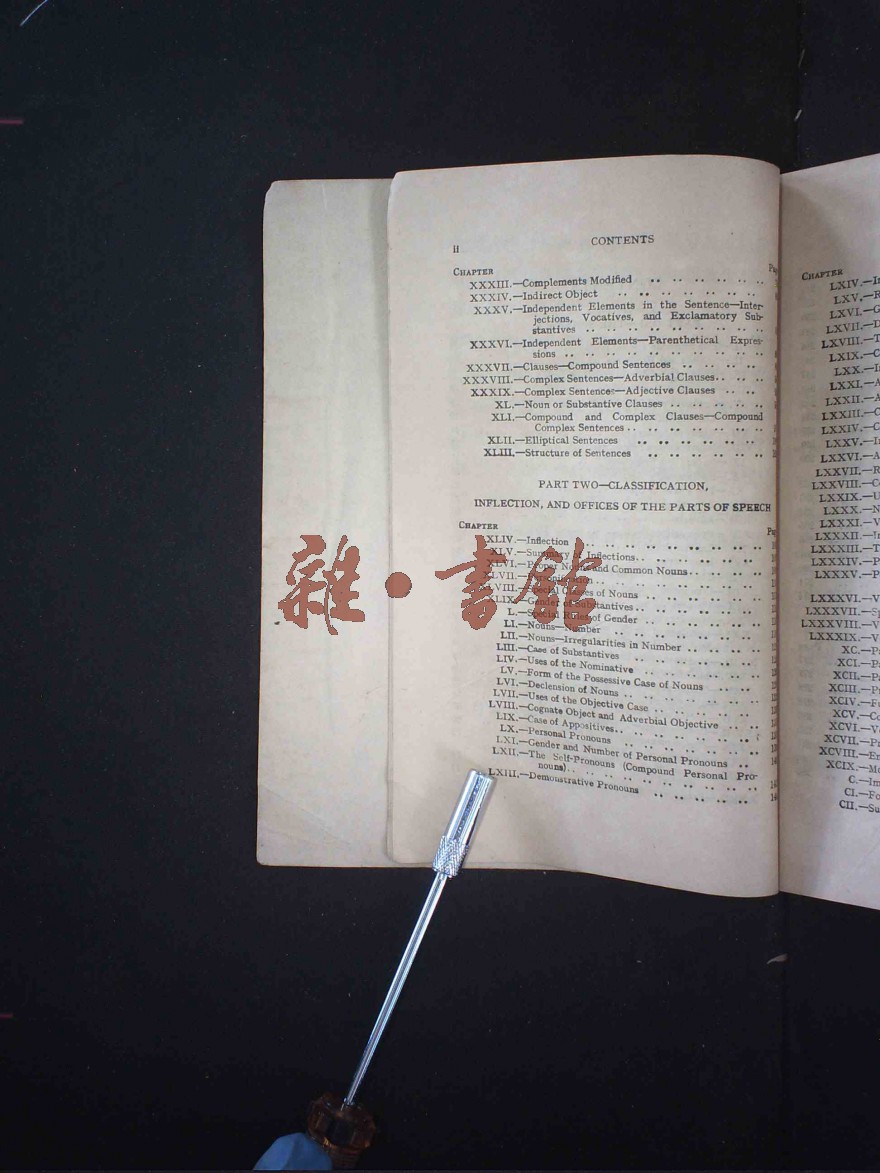 ii CONTENTS
CHAPTER
XXXIII.—Complements Modified
XXXIV.—Indirect Object
XXXV.—Independent Elements in the Sentence—Inter-
jections, Vocatives, and Exclamatory Sub-
stantives
XXXVI.—Independent Elements—Parenthetical Expres-
sions
XXXVII.—Clauses—Compound Sentences
XXXVIII.—Complex Sentences—Adverbial Clauses
XXXIX.—Complex Sentences—Adjective Clauses
XL.—Noun or Substantive Clauses
XLI.—Compound and Complex Clauses—Compound
Complex Sentences
XLII.—Elliptical Sentences
XLIII.—Structure of Sentences
PART TWO—CLASSIFICATION,
INFLECTION, AND OFFICES OF THE PARTS OF SPEECH
CHAPTER
XLIV.—Inflection
XLV.—Summary of Inflections
XLVI.—Proper Nouns and Common Nouns
XLVII.—Personification
XLVIII.—Special Classes of Nouns
XLIX.—Gender of Substantives
L.—Special Rules of Gender
LI.—Nouns—Number
LII.—Nouns—Irregularities in Number
LIII.—Case of Substantives
LIV.—Uses of the Nominative
LV.—Form of the Possessive Case of Nouns
LVI.—Declension of Nouns
LVII.—Uses of the Objective Case
LVIII.—Cognate Object and Adverbial Objective
LIX.—Case of Appositives
LX.—Personal Pronouns
LXI.—Gender and Number of Personal Pronouns
LXII.—The Self-Pronouns (Compound Personal Pro-
nouns)
LXIII.—Demonstrative Pronouns
雜·書館
CHAPTER
LXIV.
LXV.
LXVI.
LXVII.
LXVIII.
LXIX.
LXX.
LXXI.
LXXII.
LXXIII.
LXXIV.
LXXV.
LXXVI.
LXXVII.
LXXVIII.
LXXIX.
LXXX.
LXXXI.
LXXXII.
LXXXIII.
LXXXIV.
LXXXV.
LXXXVI.
LXXXVII.
LXXXVIII.
LXXXIX.
XC.
XCI.
XCII.
XCIII.
XCIV.
XCV.
XCVI.
XCVII.
XCVIII.
XCIX.
C.
CI.
CII.